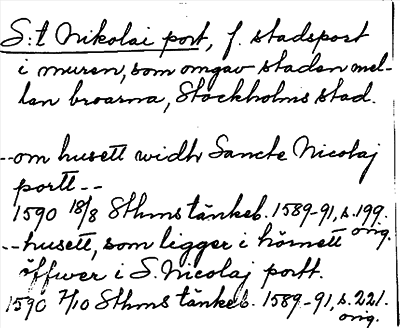 S:t Nikolai port, f. stadsport
i muren, som omgav staden mel-
lan broarna, Stockholms stad.
--om husett widh Sancte Nicolaj
portt--
1590 18/8 Sthms tänkeb. 1589-91, s. 199.
orig.
--husett, som ligger i hörnett
öffwer i S. Nicolaj portt.
1590 7/10 Sthms tänkeb. 1589-91, s. 221.
orig.